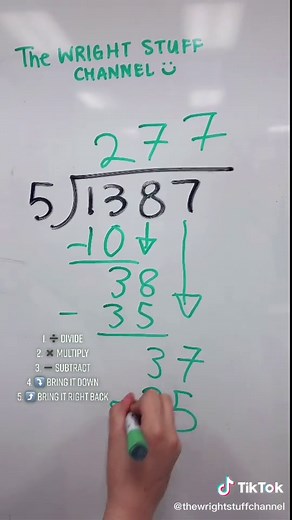 The WRIGHT STUFF
CHANNEL
277
5)1387
-10
38
- 35
37
5
1 ➗ DIVIDE
2 ✖ MULTIPLY
3 ➖ SUBTRACT
4 ⤵ BRING IT DOWN
5 ⤴ BRING IT RIGHT BACK
TikTok
@thewrightstuffchannel